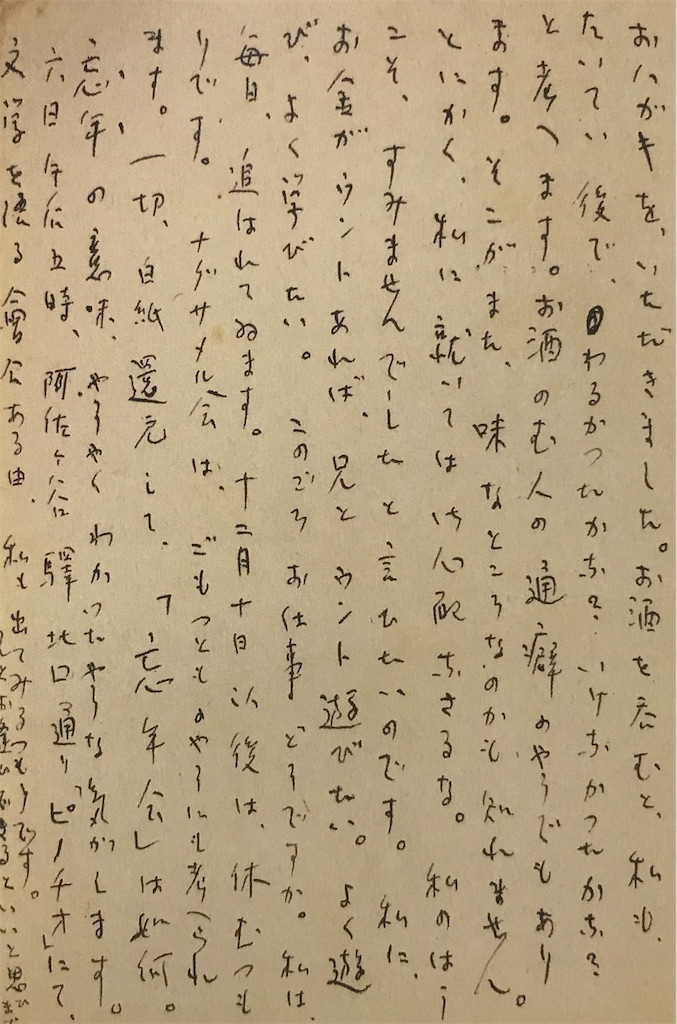 おハガキを、いただきました。お酒を呑むと、私も、
たいてい後で、わるかつたかな？いけなかつたかな？
と考へます。お酒のむ人の通癖のやうでもあり
ます。そこが、また、味なところなのかも知れません。
とにかく、私に就いては御心配なさるな。私のはう
こそ、すみませんでしたと言ひたいのです。私に、
お金がウントあれば、兄とウント遊びたい。よく遊
び、よく学びたい。このごろお仕事どうですか。私は、
毎日、追はれてゐます。十二月十日以後は、休むつも
りです。ナグサメル会は、ごもつとものやうにも考へられ
ます。一切、白紙還元して、「忘年会」は如何。
忘年の意味、やうやくわかつたやうな気がします。
六日午后五時、阿佐ヶ谷驛北口通り「ピノチオ」にて、
文学を語る會合ある由、私も出てみるつもりです。
お逢ひ出来るといいと思ひます